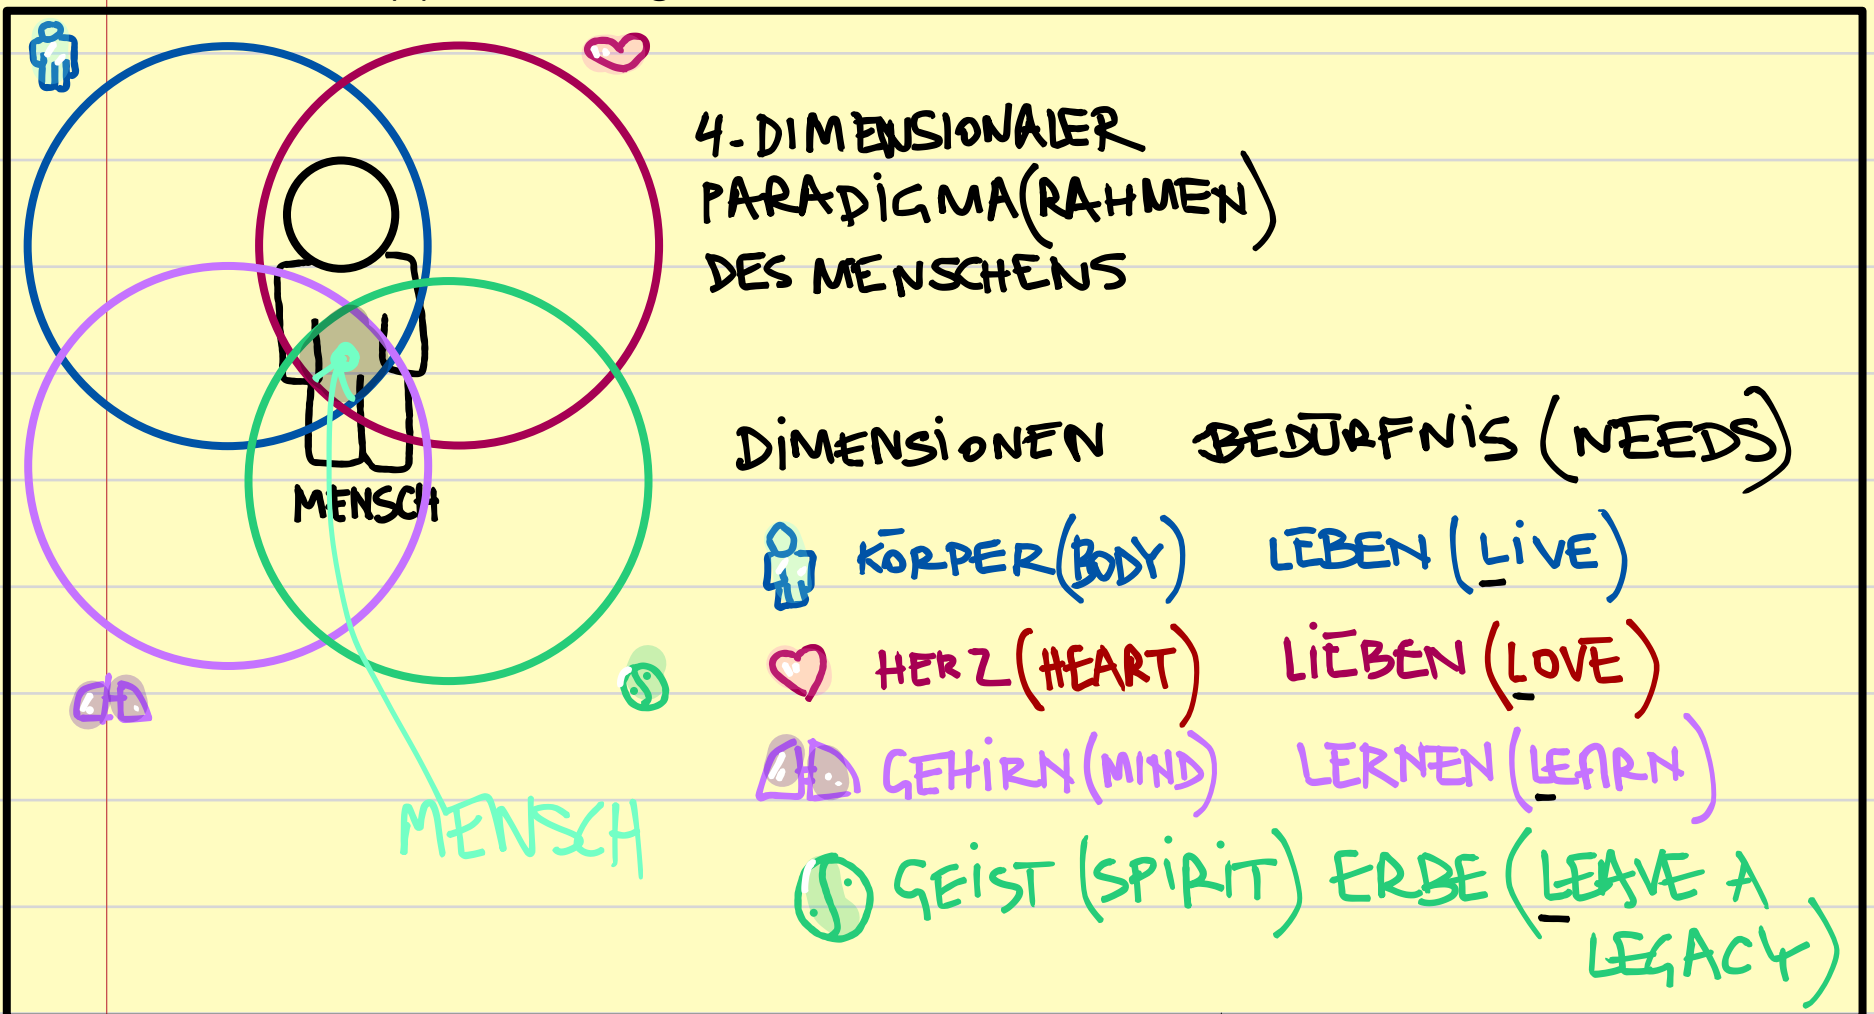 4-DIMENSIONALER
PARADIGMA (RAHMEN)
DES MENSCHENS
MENSCH
DIMENSIONEN BEDÜRFNIS (NEEDS)
KÖRPER (BODY) LEBEN (LIVE)
HERZ (HEART) LIEBEN (LOVE)
GEHIRN (MIND) LERNEN (LEARN)
MENSCH
GEIST (SPIRIT) ERBE (LEAVE A
LEGACY)